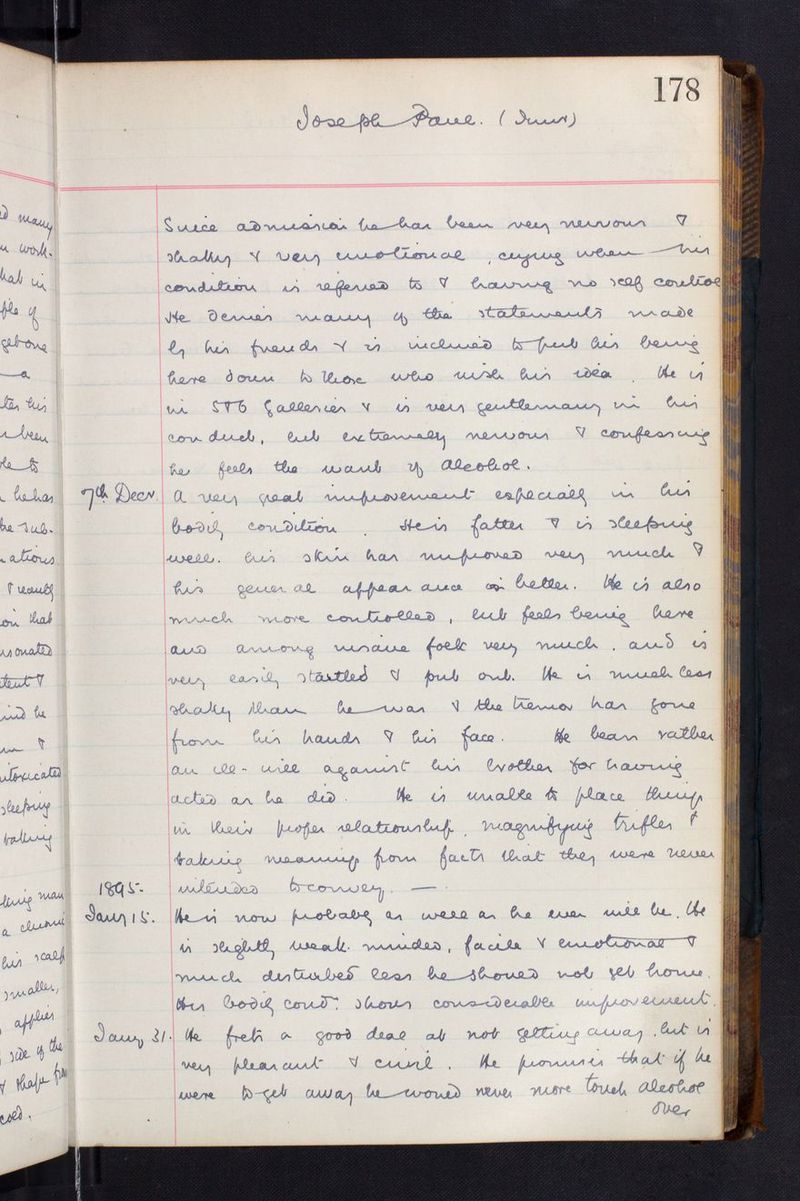 178
Joseph Paul. (Junr)
Since admission he has been very nervous &
shaky & very emotional, crying when his
condition is referred to & having no self control
He denies many of the statements made
by his friends & is inclined to put his being
here down to those who wish his . He is
in 5 & 6 Galleries & is very gentlemanly in his
conduct, but extremely nervous & confessing
he feels the want of Alcohol.
7th Decr. A very great improvement especially in his
bodily condition. He is fatter & is sleeping
well. his skin has improved very much &
his general appearance is better. He is also
much more controlled, but feels being here
and among insane folk very much. and is
very easily startled & put out. He is much less
shaky than he was & the tremor has gone
from his hands & his face. He bears rather
an ill-will against his brother for having
acted as he did. He is unable to place things
in their proper relationship, magnifying trifles &
taking meanings from facts that they were never
intended to convey. —
1895.
Jany 15. He is now probably as well as he ever will be. He
is slightly weak-minded, facile & emotional &
much disturbed less he should not get home.
His bodily condn. shows considerable improvement.
Jany 31. He frets a good deal at not getting away. but is
very pleasant & civil. He promises that if he
were to get away he would never more touch alcohol
over
many
work-
that in
of
get one
a
his
been
to
he has
he sub-
& readily
on that
& 
he
&
intoxicated
sleeping
taking
man
a
his scalp
smaller,
applies
side of the
& shape from